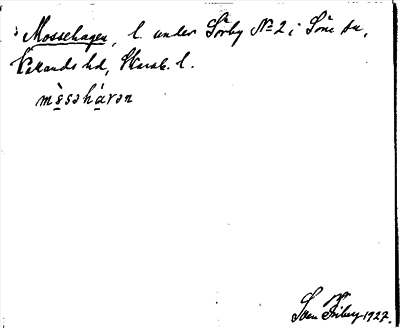 Mossehagen, l. under Sörby No 2 i Söne sn,
Kållands hd, Skarab. l.
mɵ̀səhàɤən
Sven Friberg 1927.